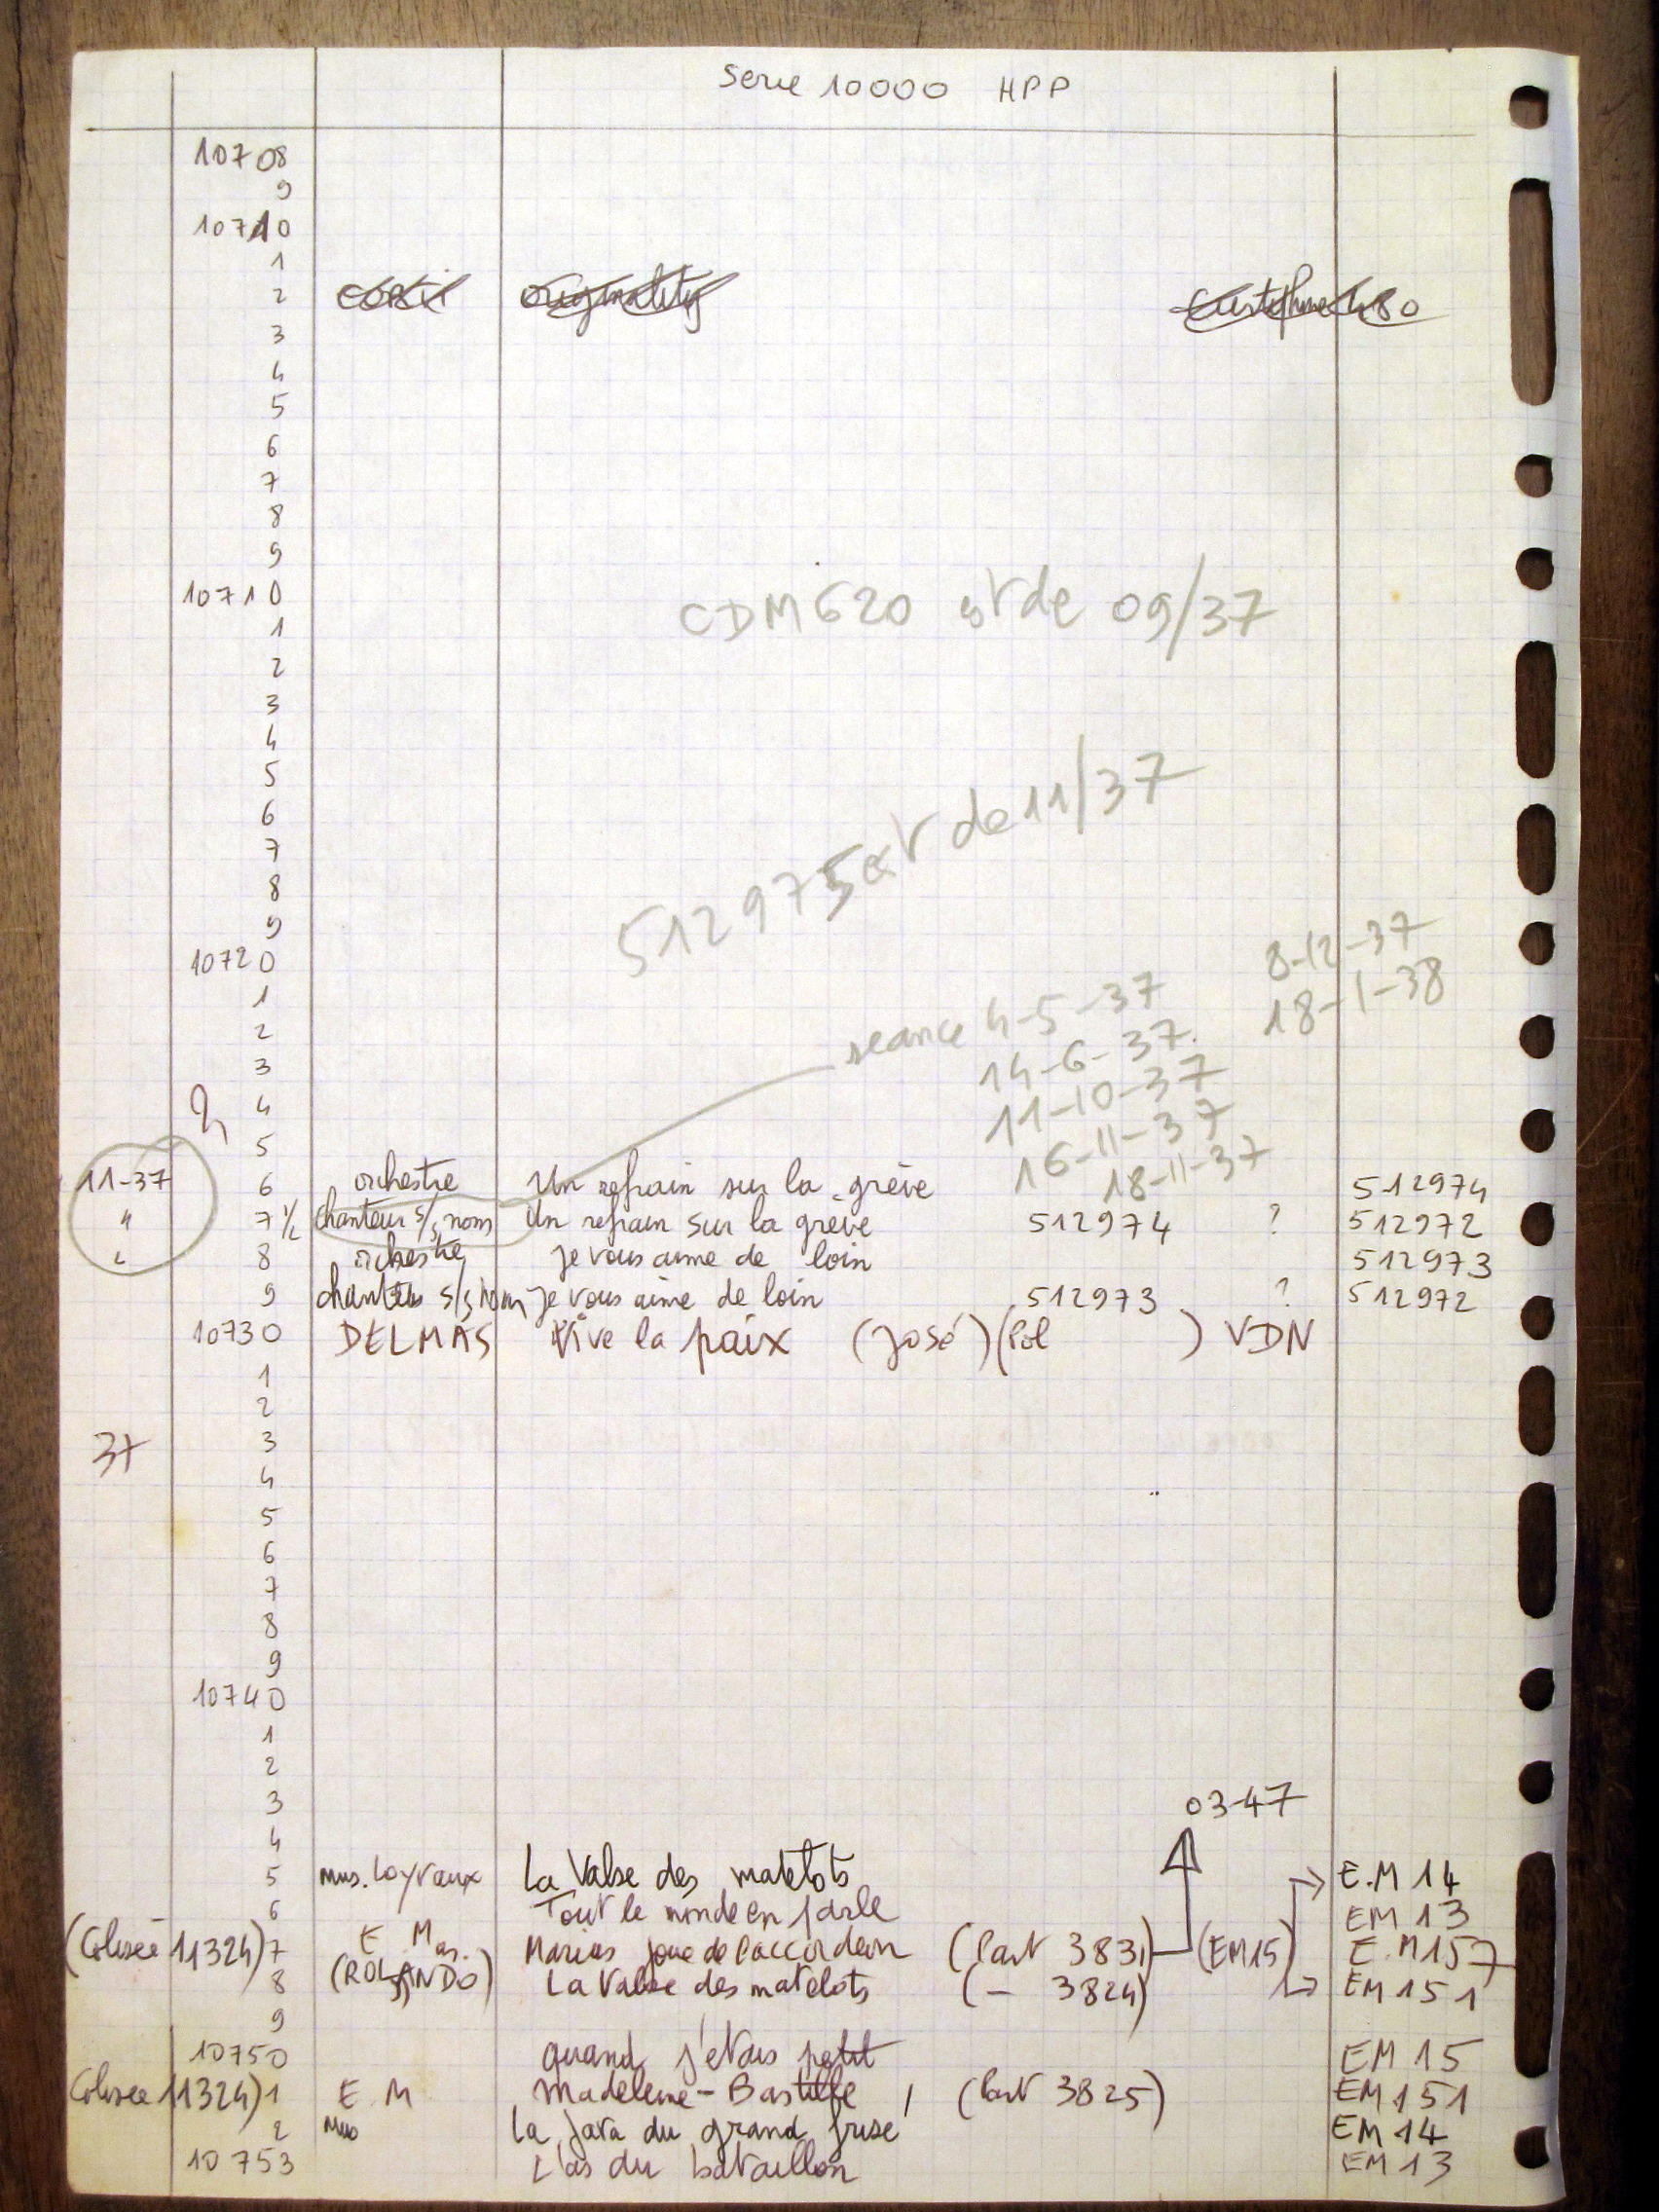 Serie 10000 HPP
10708
9
10710
1
2
3
4
5
6
7
8
9
10710
CDM 620 est de 09/37
1
2
3
4
5
6
7
8
512975 est de 11/37
9
10720
8-12-37
1
18-1-38
2
seance 4-5-37
3
14-6-37
4
11-10-37
5
16-11-37
11-37 6 orchestre Un refrain sur la grève 18-11-37 512974
" 7 1/2 chanteur s/s nom Un refrain sur la greve 512974 ? 512972
" 8 orchestre je vous aime de loin 512973
9 chanteur s/s nom je vous aime de loin 512973 ? 512972
10730 DELMAS Vive la paix (José) (Pol ) VDN
1
2
37 3
4
5
6
7
8
9
10740
1
2
3 03-47
4
5 mus. Loyraux La Valse des matelots E.M 14
6 Tout le monde en parle EM 13
(Colisée 11324) 7 E Mas. Marius joue de l'accordeon (Part 3831) (EM15) E.M 157
8 (ROLANDO) La Valse des matelots (- 3824) EM 151
9
10750 quand j'etais petit EM 15
Colisee 11324) 1 E M Madeleine-Bastille (Part 3825) EM 151
2 Mus La java du grand frisé EM 14
10753 L'as du bataillon EM 13